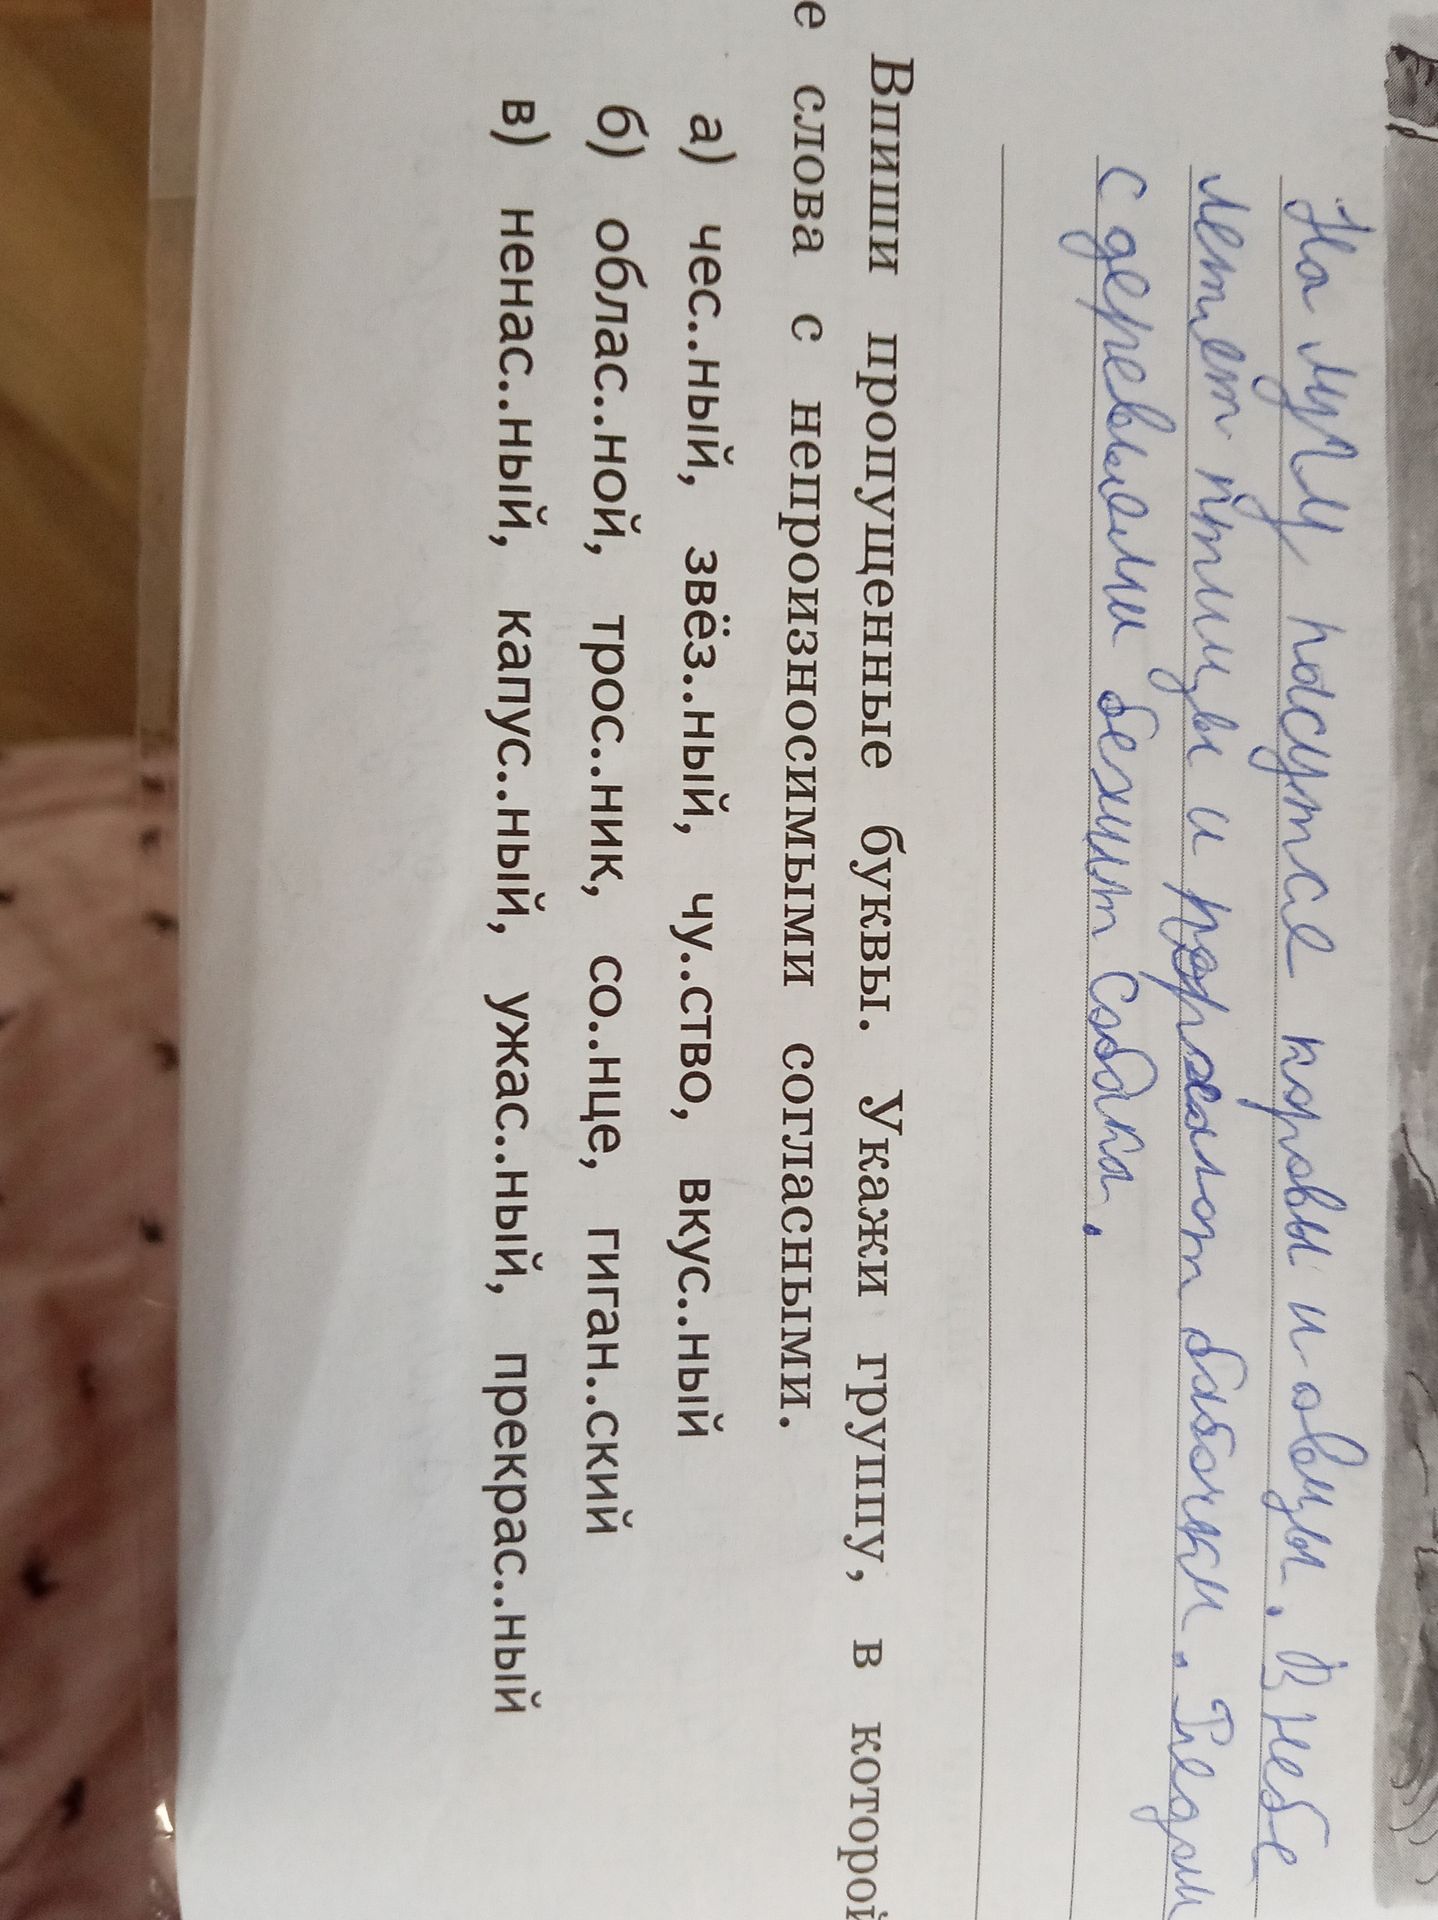 На лугу пасутся коровы и овцы. В небе
летят птицы и порхают бабочки. Рядом
с деревьями бежит собака.
Впиши пропущенные буквы. Укажи группу, в которой
е слова с непроизносимыми согласными.
а) чес..ный, звёз..ный, чу..ство, вкус..ный
б) облас..ной, трос..ник, со..нце, гиган..ский
в) ненас..ный, капус..ный, ужас..ный, прекрас..ный